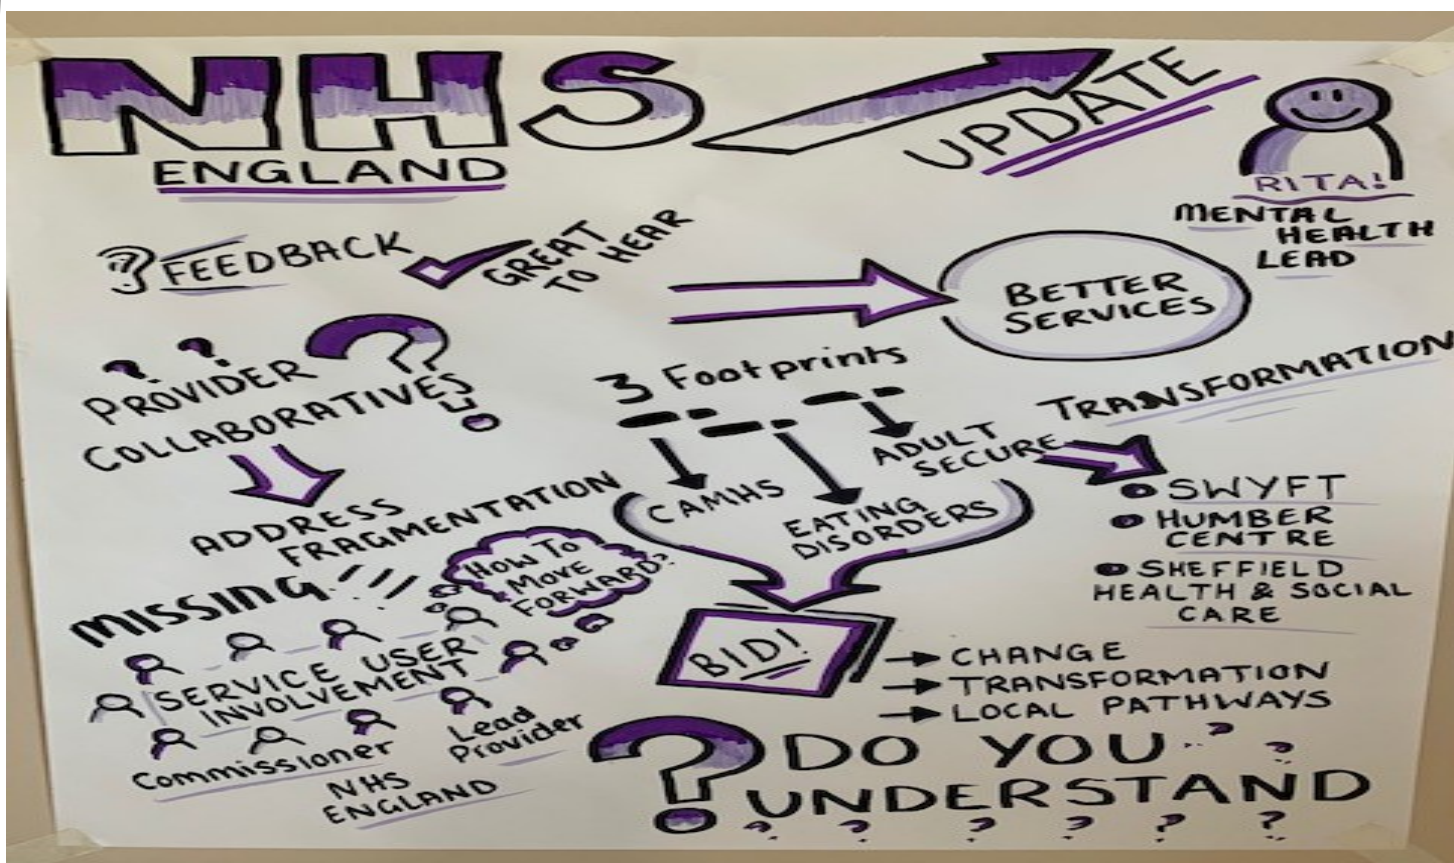 NHS
ENGLAND
UPDATE
RITA!
MENTAL
HEALTH
LEAD
? FEEDBACK
GREAT
TO HEAR
BETTER
SERVICES
? ? ?
PROVIDER
COLLABORATIVES
ADDRESS
FRAGMENTATION
3 Footprints
CAMHS
EATING
DISORDERS
ADULT
SECURE
TRANSFORMATION
SWYFT
HUMBER
CENTRE
SHEFFIELD
HEALTH & SOCIAL
CARE
MISSING
HOW TO
MOVE
FORWARD?
SERVICE USER
INVOLVEMENT
Commissioner
Lead
Provider
NHS
ENGLAND
BID!
CHANGE
TRANSFORMATION
LOCAL PATHWAYS
? DO YOU ? ?
UNDERSTAND
? ? ? ? ? ?